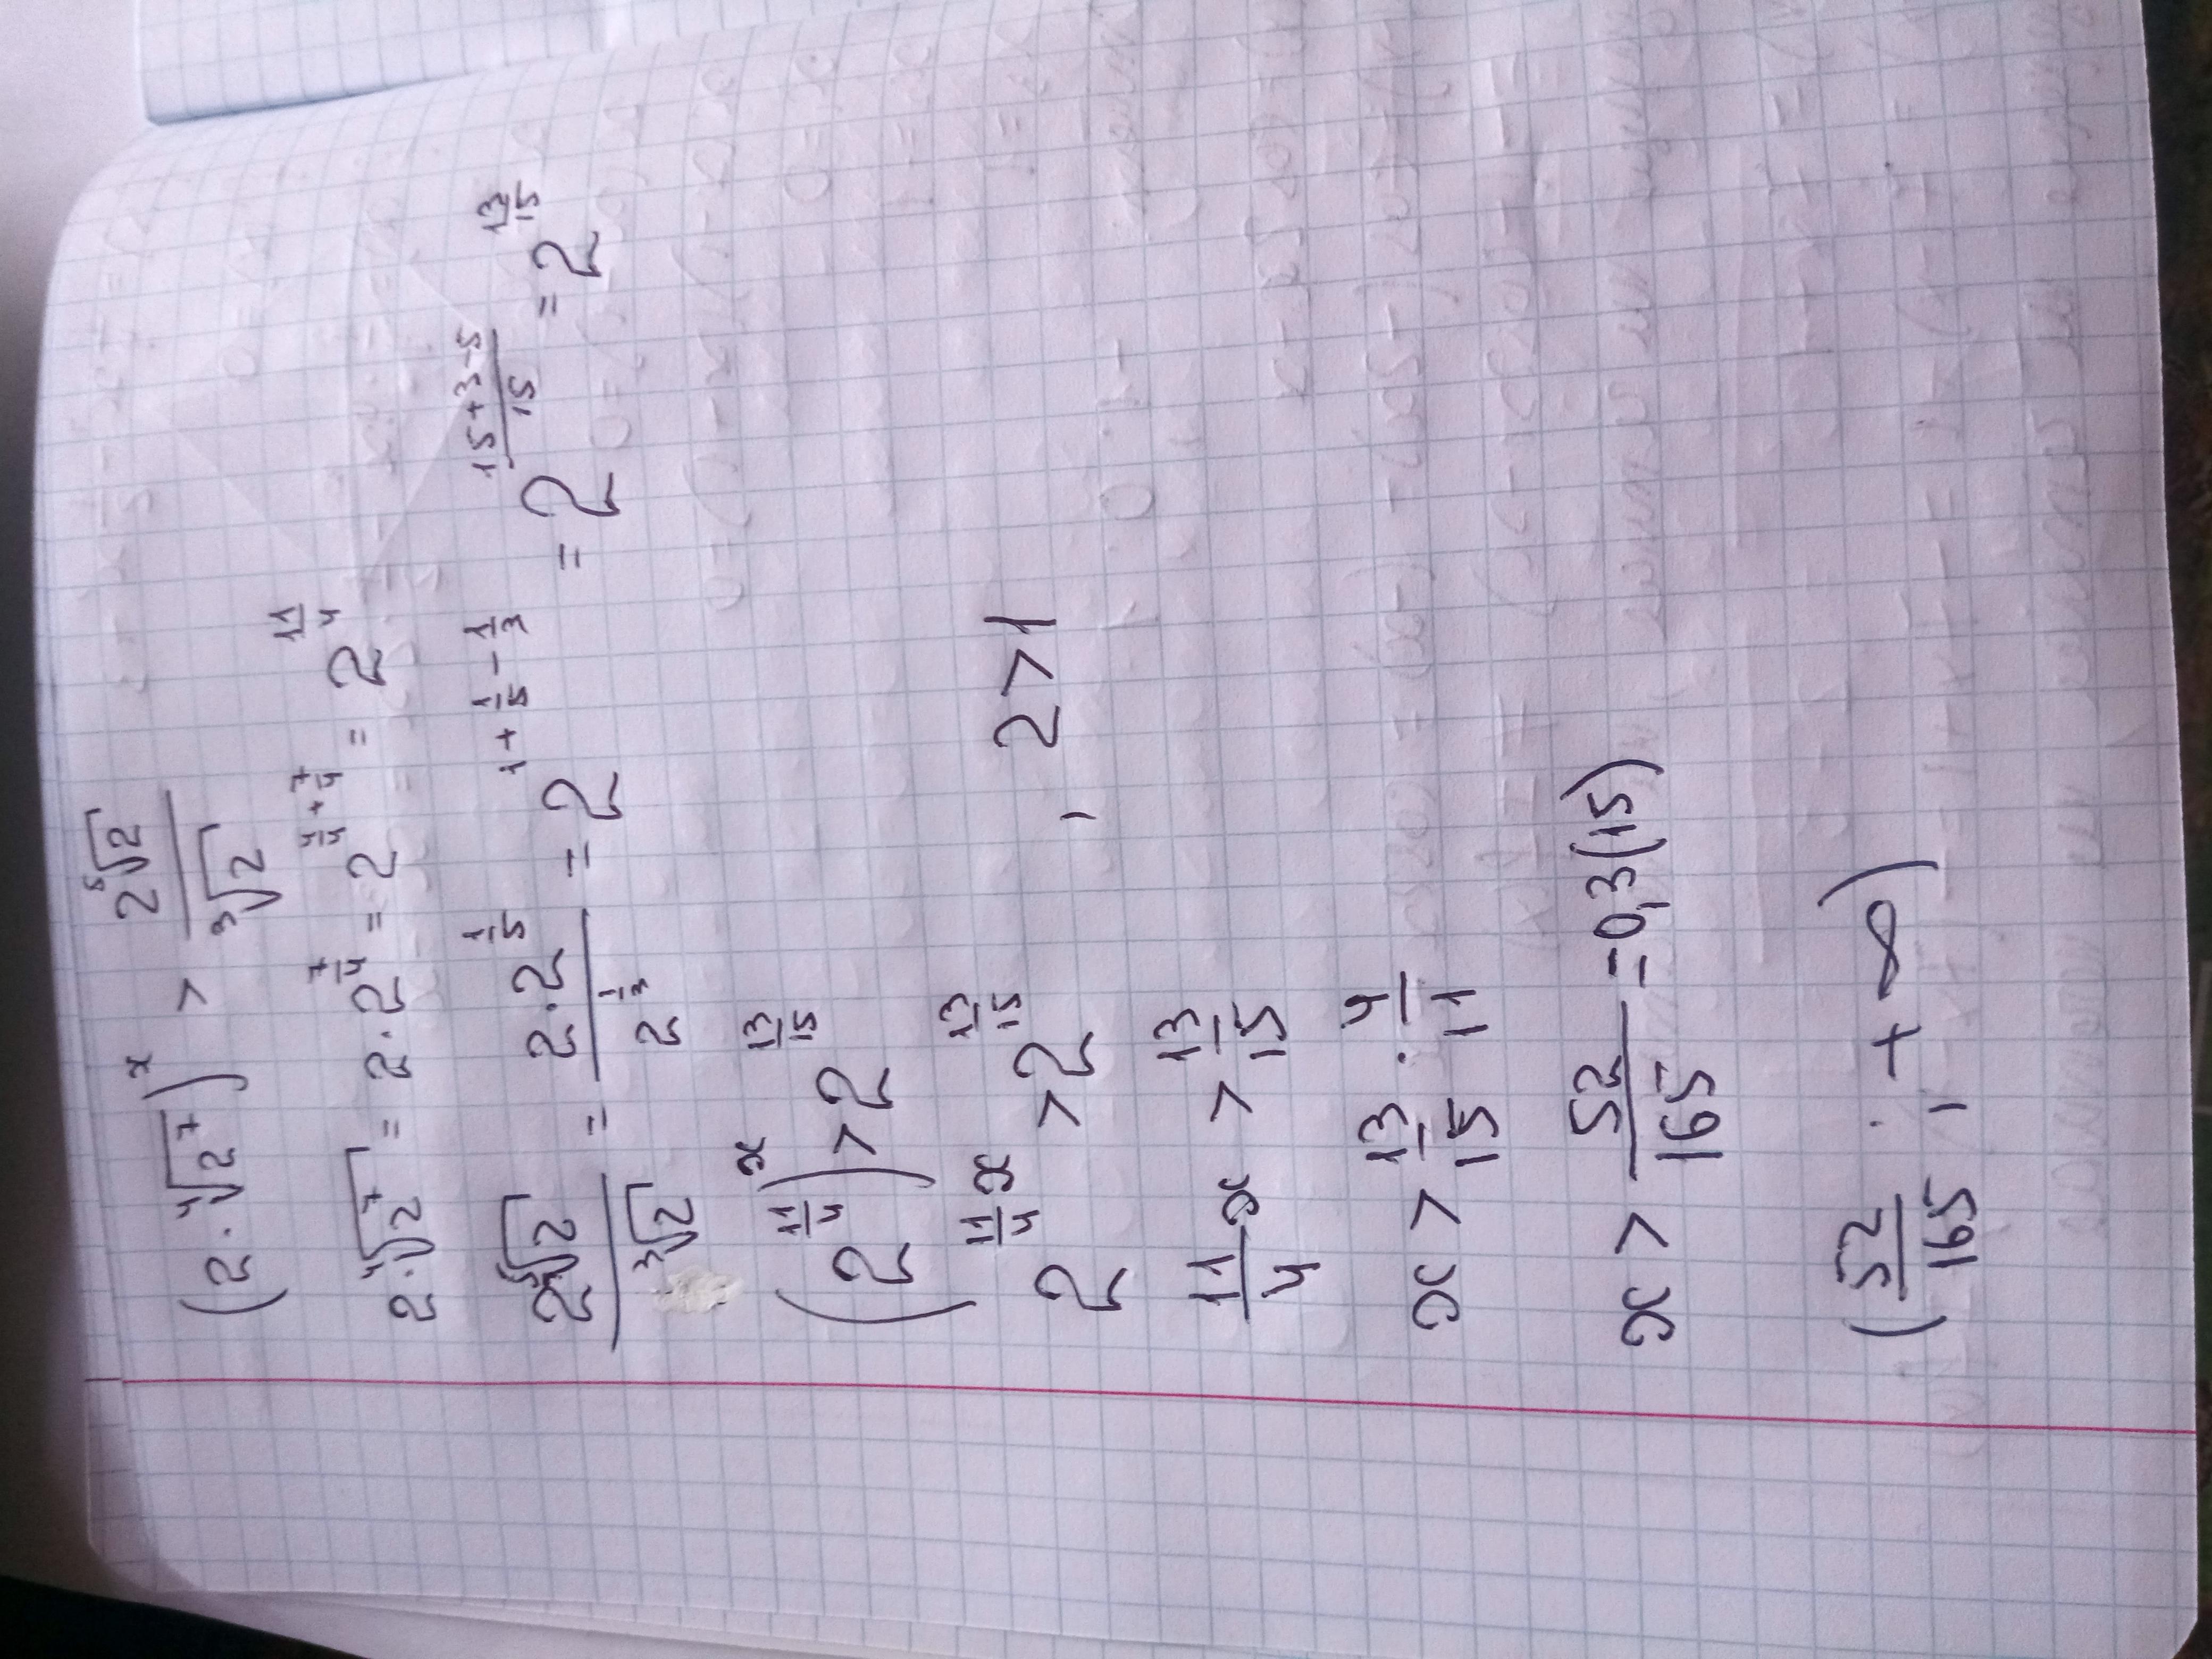 (2·⁴√2⁷)ˣ > 2⁵√2 / ³√2
2·⁴√2⁷ = 2·2^(7/4) = 2^(4/4+7/4) = 2^(11/4)
2⁵√2 / ³√2 = 2·2^(1/5) / 2^(1/3) = 2^(1+1/5-1/3) = 2^((15+3-5)/15) = 2^(13/15)
(2^(11/4))ˣ > 2^(13/15)
2^(11/4 x) > 2^(13/15) , 2>1
11/4 x > 13/15
x > 13/15 · 4/11
x > 52/165 = 0,3(15)
(52/165 ; +∞)